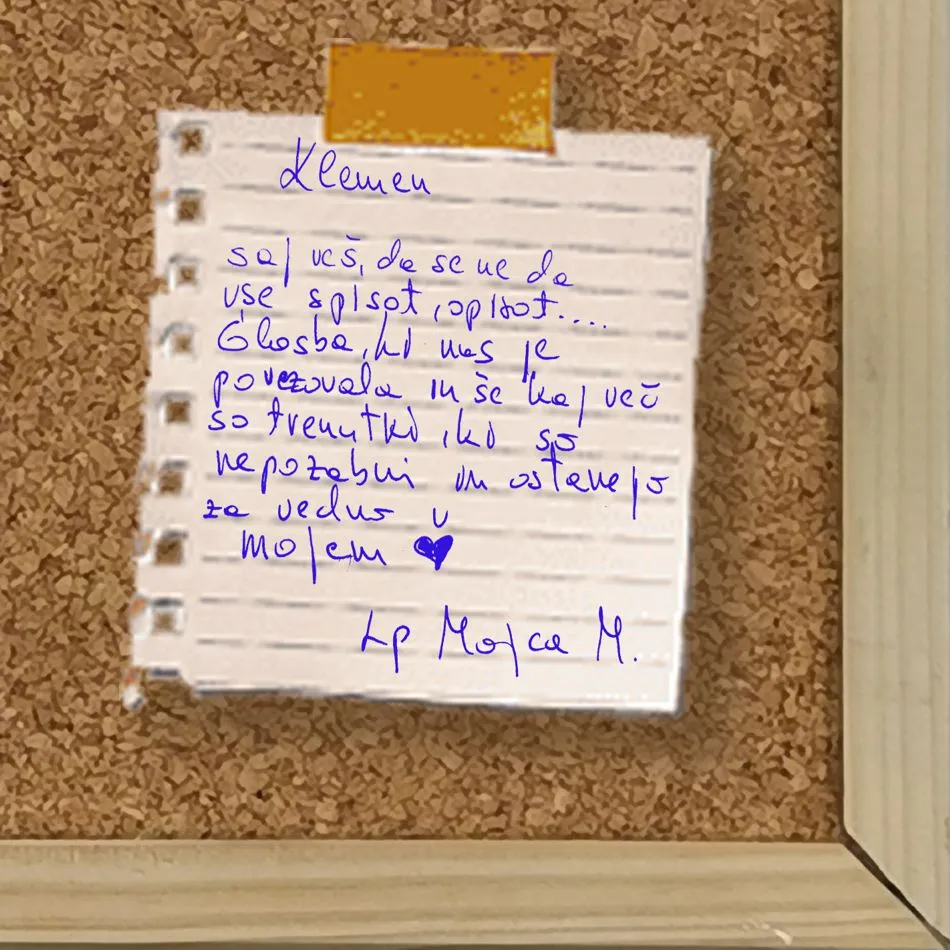 Klemen
saj veš, da se ne da
vse spisat, opisat....
Glasba, ki nas je
povezovala in še kaj več
so trenutki, ki so
nepozabni in ostanejo
za vedno v
mojem ♥
Lp Mojca M.